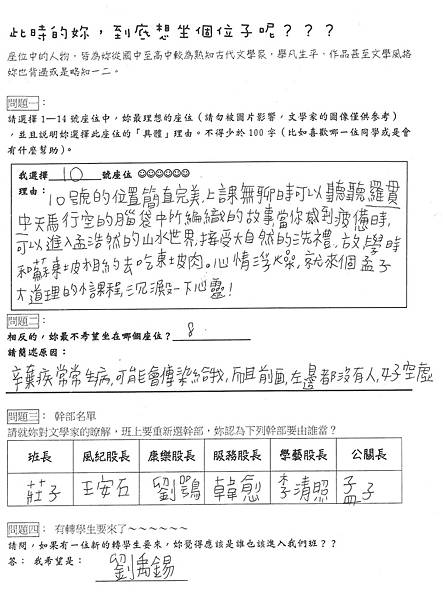 此時的妳，到底想坐個位子呢？？？
座位中的人物，皆為妳從國中至高中較為熟知古代文學家，舉凡生平、作品甚至文學風格
妳也背過或是略知一二。
問題一：
請選擇 1－14 號座位中，妳最理想的座位（請勿被圖片影響，文學家的圖像僅供參考）
，並且説明妳選擇此座位的「具體」理由。不得少於 100 字（比如喜歡哪一位同學或是會
有什麼幫助）。
我選擇 10 號座位 ☺☺☺☺☺☺
理由：10號的位置簡直完美，上課無聊時可以聽聽羅貫
中天馬行空的腦袋中所編織的故事，當你感到疲憊時，
可以進入孟浩然的山水世界，接受大自然的洗禮，放學時
和蘇東坡相約去吃東坡肉。心情浮躁，就來個孟子
大道理的小課程，沉澱一下心靈！
問題二：
相反的，妳最不希望坐在哪個座位？ 8
請簡述原因：
辛棄疾常常生病，可能會傳染給我，而且前面，左邊都沒有人，好空虛
問題三： 幹部名單
請就妳對文學家的瞭解，班上要重新選幹部，妳認為下列幹部要由誰當？
班長 風紀股長 康樂股長 服務股長 學藝股長 公關長
莊子 王安石 劉鶚 韓愈 李清照 孟子
問題四： 有轉學生要來了～～～～～～
請問，如果有一位新的轉學生要來，妳覺得應該是誰也該進入我們班？？
答： 我希望是： 劉禹錫